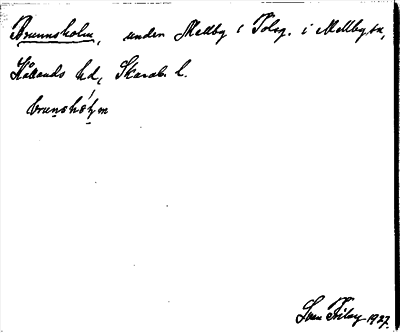 Brunnsholm, under Mellby i Tolsg. i Mellby sn,
Kållands hd, Skarab. l.
brunshóḷm
Sven Ekbo 1927.